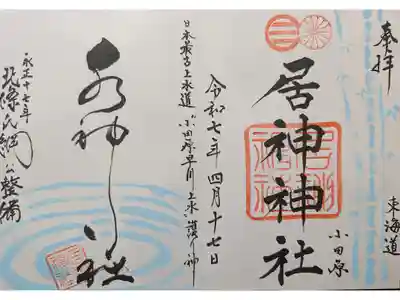 奉拝
東海道
小田原
居神神社
令和七年四月十七日
日本最古上水道"小田原早川上水"護り神
水神社
永正十七年
北條氏綱公整備